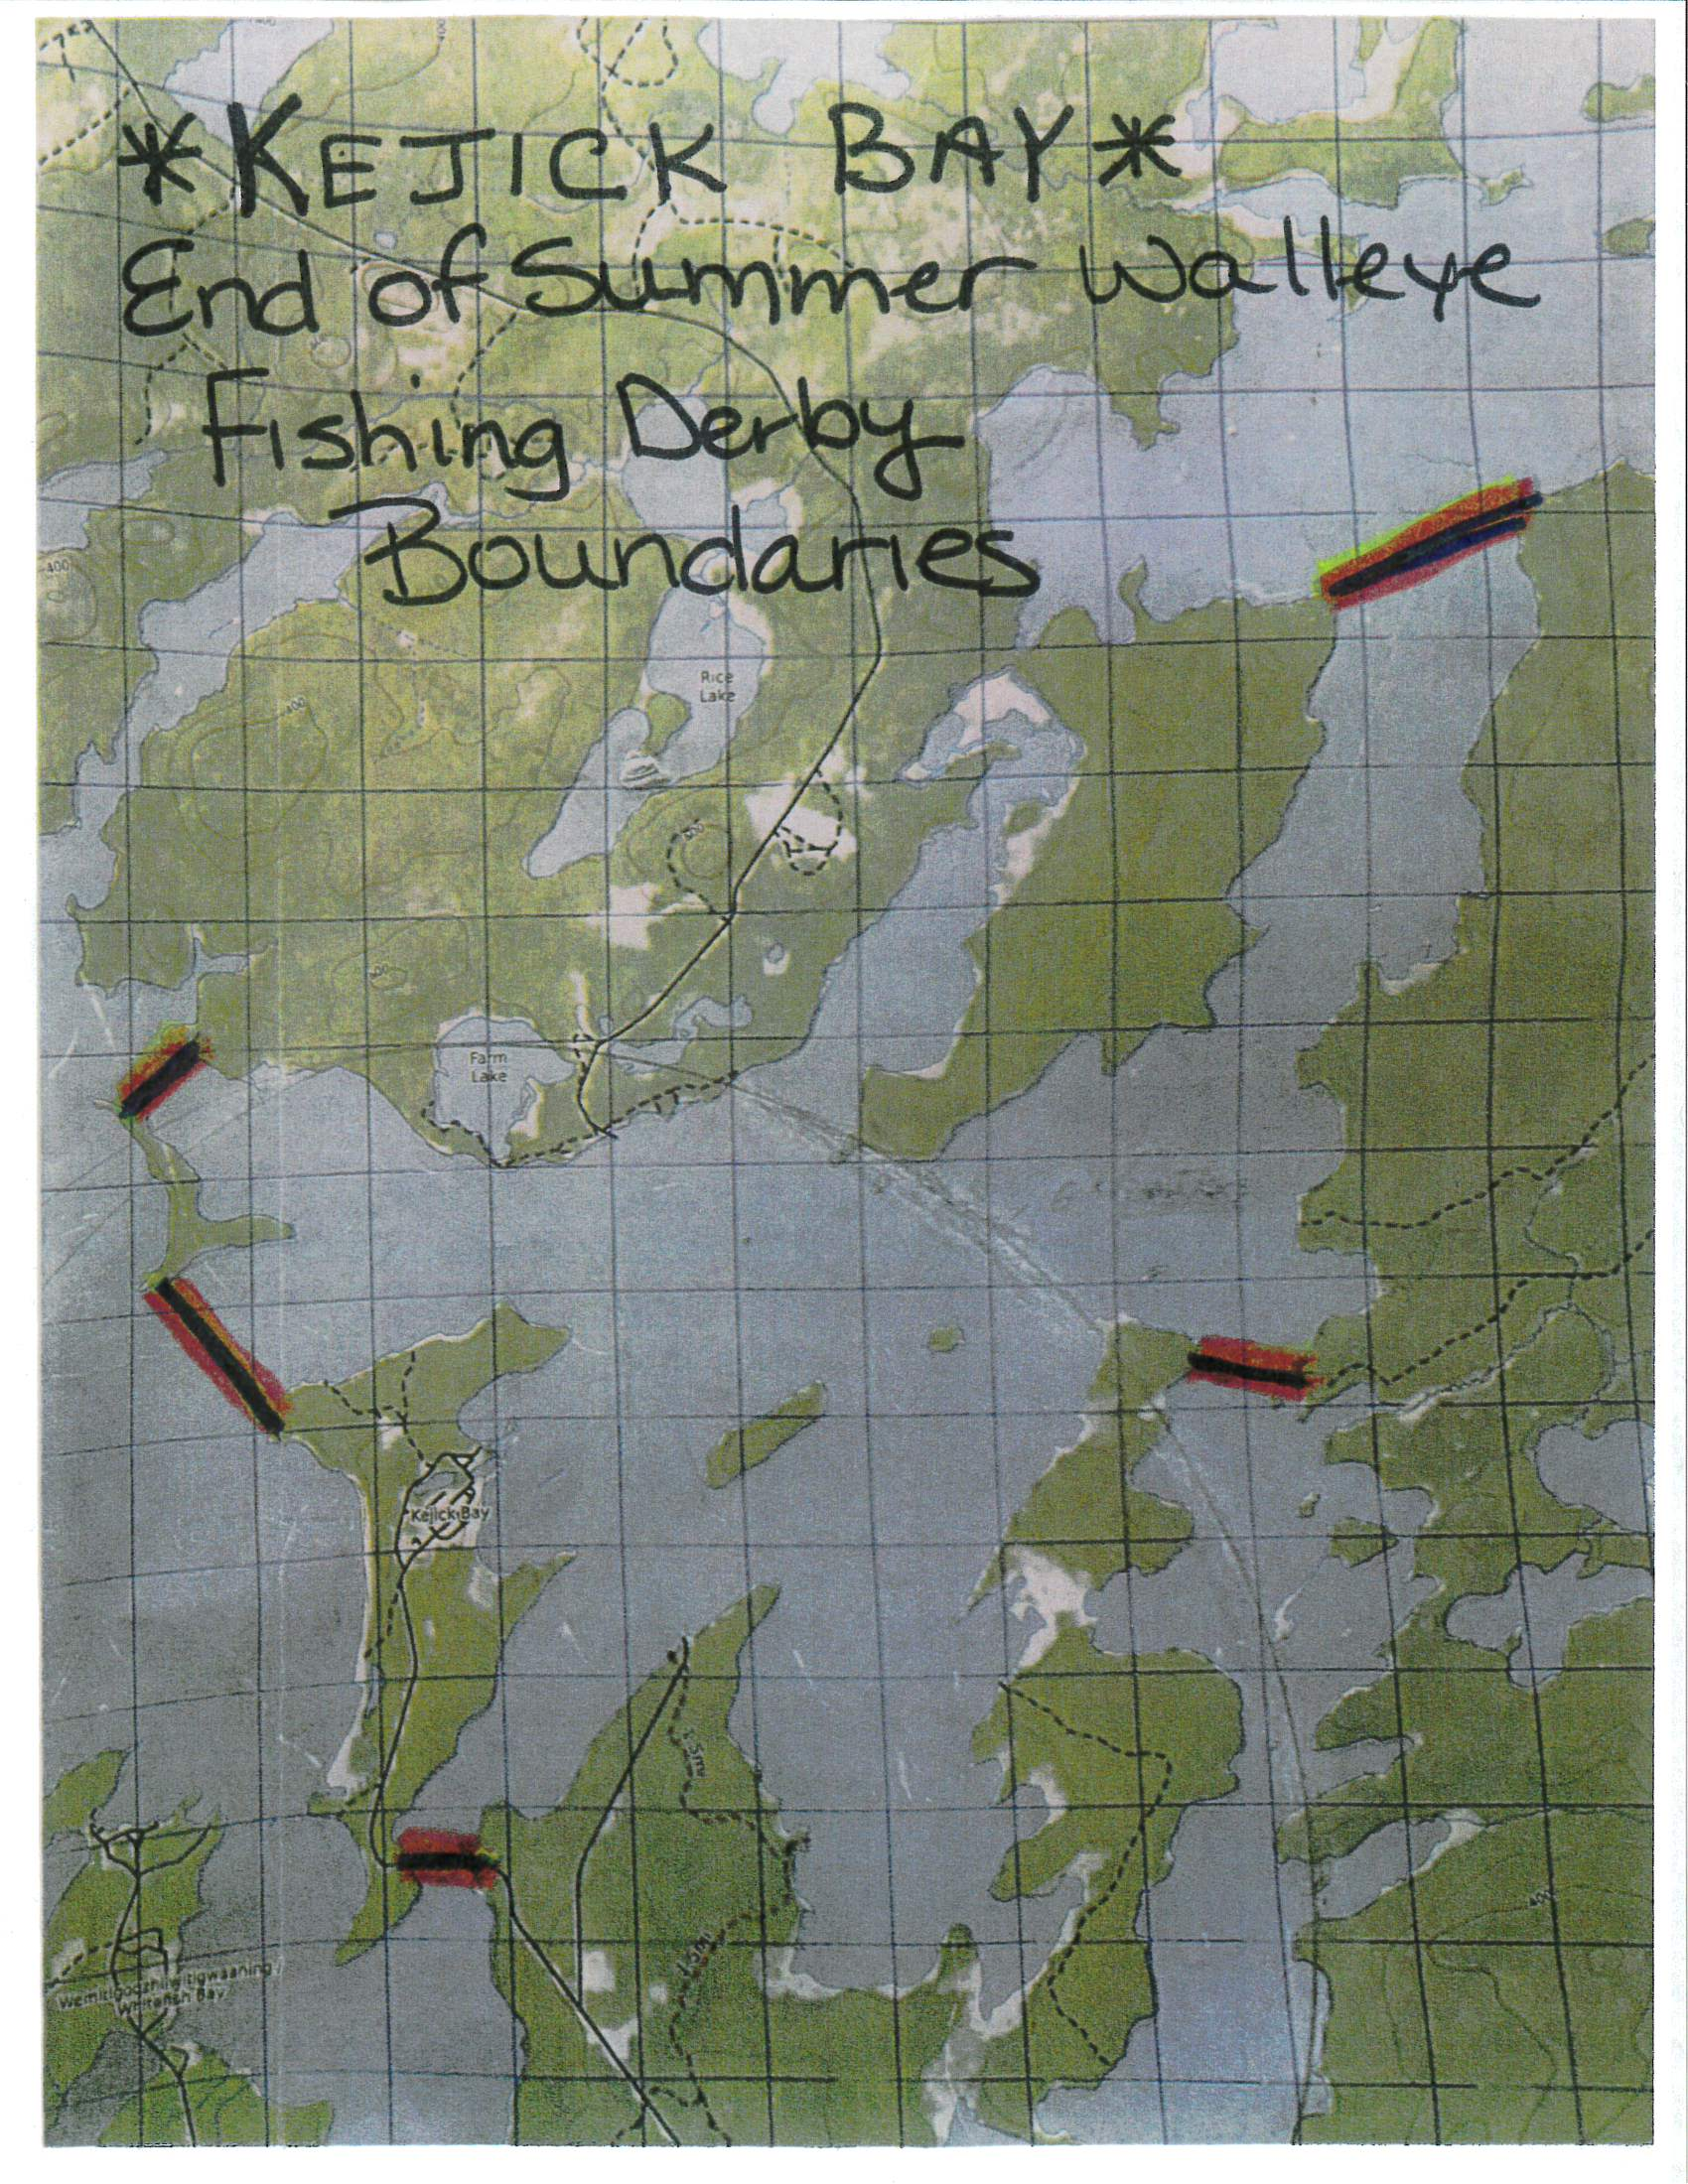 *KEJICK BAY*
End of Summer Walleye
Fishing Derby
Boundaries
400
Rice
Lake
400
400
400
Farm
Lake
Kejick Bay
1.5mi
1.5mi
400
Whitefish Bay